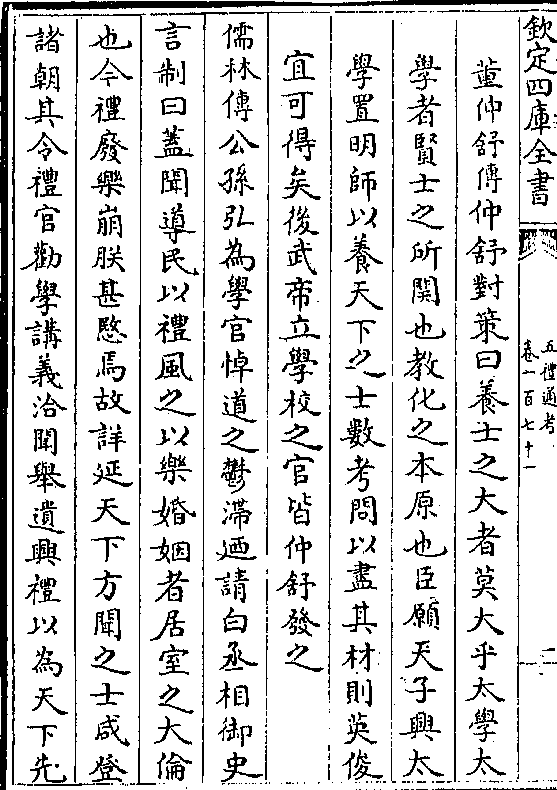 欽定四庫全書
五禮通考
卷一百七十一
二
董仲舒傳仲舒對策曰養士之大者莫大乎太學太
學者賢士之所關也教化之本原也臣願天子興太
學置明師以養天下之士數考問以盡其材則英俊
宜可得矣後武帝立學校之官皆仲舒發之
儒林傳公孫弘為學官悼道之鬱滯廼請白丞相御史
言制曰蓋聞導民以禮風之以樂婚姻者居室之大倫
也今禮廢樂崩朕甚愍焉故詳延天下方聞之士咸登
諸朝其令禮官勸學講義洽聞舉遺興禮以為天下先